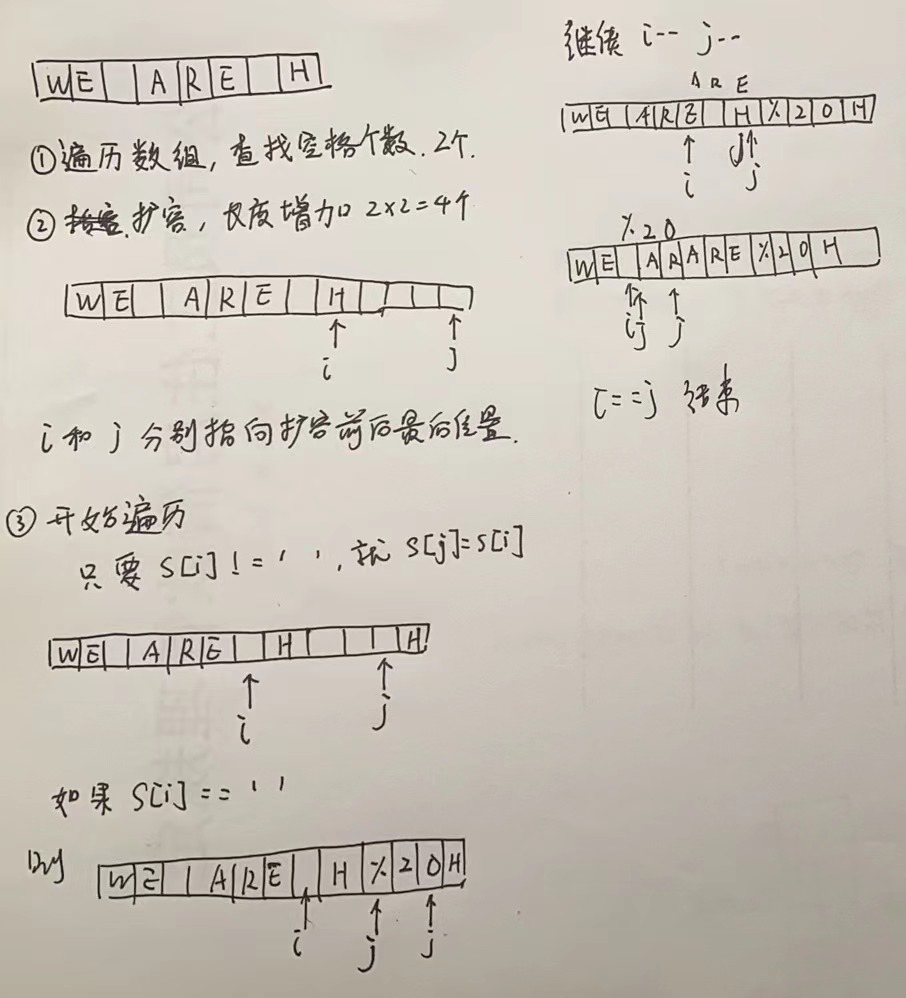 WE ARE H
①遍历数组,查找空格个数.2个.
② 扩容,长度增加 2×2=4个
WE ARE H
i j
i 和 j 分别指向扩容前后最后位置.
③开始遍历
只要 S[i] != ' ',就 S[j]=S[i]
WE ARE H H
i j
如果 S[i] == ' '
则 WE ARE H%20H
i j j
继续 i-- j--
A R E
WE ARE H%20H
i j j
%20
WE ARARE%20H
i j j
i==j 结束